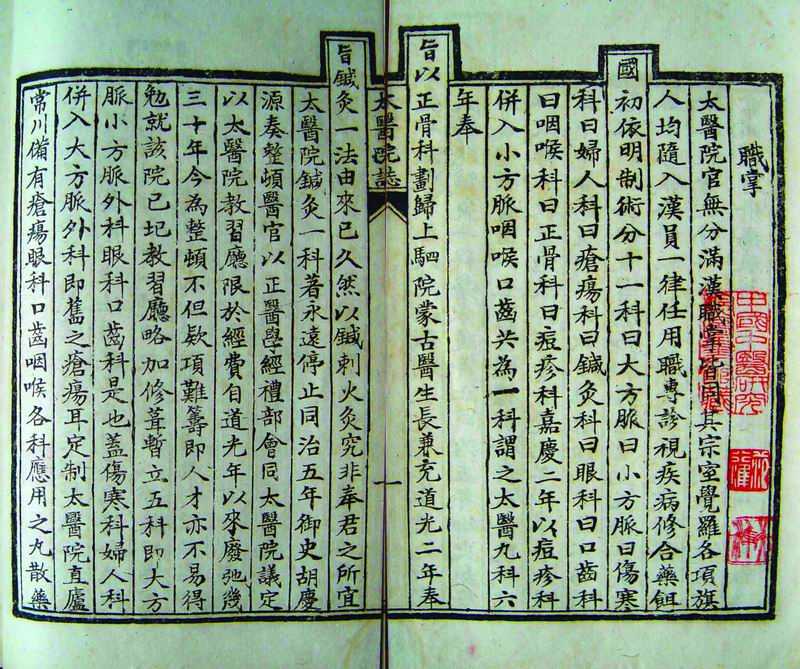 職掌
太醫院官無分滿漢職掌皆同其宗室覺羅各項旗
人均隨入漢員一律任用職專診視疾病修合藥餌
國初依明制術分十一科曰大方脈曰小方脈曰傷寒
科曰婦人科曰瘡瘍科曰鍼灸科曰眼科曰口齒科
曰咽喉科曰正骨科曰痘疹科嘉慶二年以痘疹科
併入小方脈咽喉口齒共為一科謂之太醫九科六
年奉
旨以正骨科劃歸上駟院蒙古醫生長兼充道光二年奉
太醫院誌
一
旨鍼灸一法由來已久然以鍼刺火灸究非奉君之所宜
太醫院鍼灸一科著永遠停止同治五年御史胡慶
源奏整頓醫官以正醫學經禮部會同太醫院議定
以太醫院教習廳限於經費自道光年以來廢弛幾
三十年今為整頓不但欵項難籌即人才亦不易得
勉就該院已圮教習廳略加修葺暫立五科即大方
脈小方脈外科眼科口齒科是也蓋傷寒科婦人科
併入大方脈外科即舊之瘡瘍耳定制太醫院直廬
常川備有瘡瘍眼科口齒咽喉各科應用之丸散藥
中國中醫研究